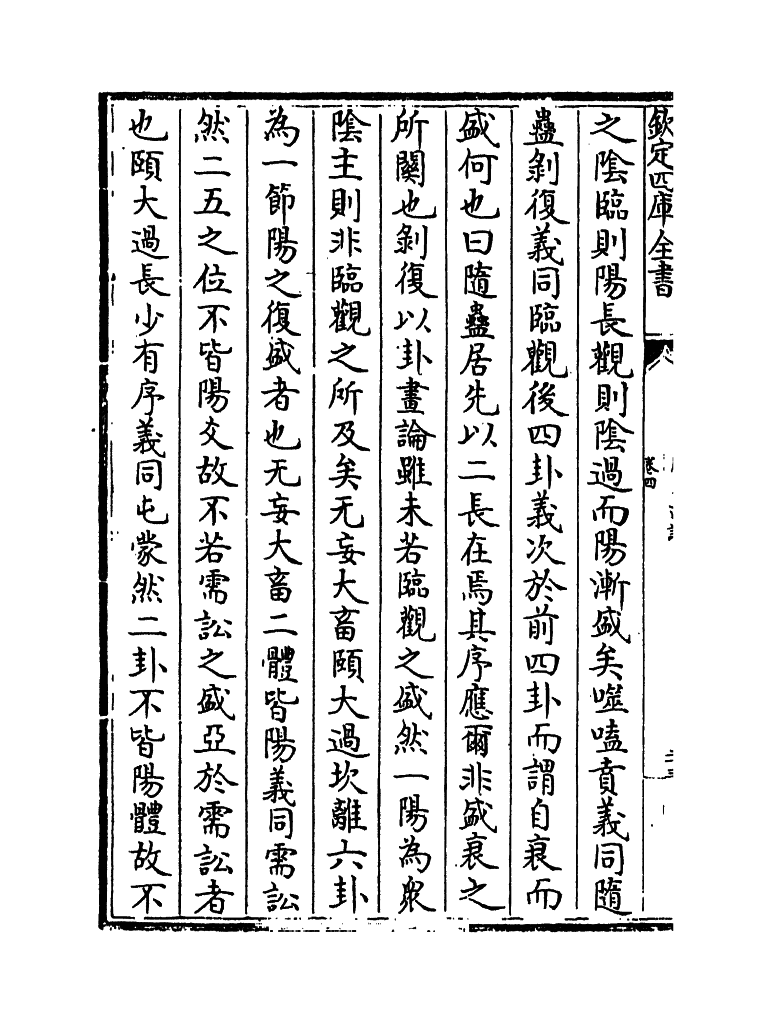 欽定四庫全書
卷四
之陰臨則陽長觀則陰過而陽漸盛矣噬嗑賁義同隨
蠱剝復義同臨觀後四卦義次於前四卦而謂自衰而
盛何也曰隨蠱居先以二長在焉其序應爾非盛衰之
所關也剝復以卦畫論雖未若臨觀之盛然一陽為衆
陰主則非臨觀之所及矣无妄大畜頤大過坎離六卦
為一節陽之復盛者也无妄大畜二體皆陽義同需訟
然二五之位不皆陽爻故不若需訟之盛亞於需訟者
也頤大過長少有序義同屯蒙然二卦不皆陽體故不